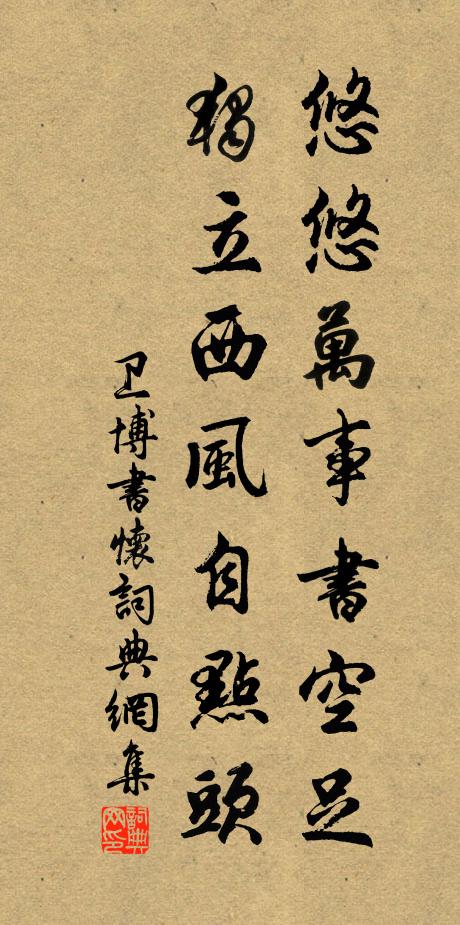 悠悠萬事書空足
獨立西風自點頭
卫博書懷詞典網集
詞典网印